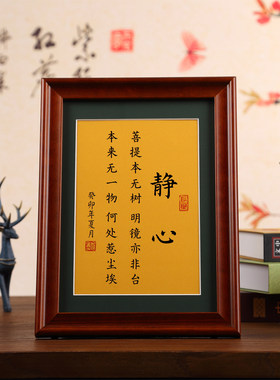 静心
菩提本无树 明镜亦非台
本来无一物 何处惹尘埃
癸卯年夏月